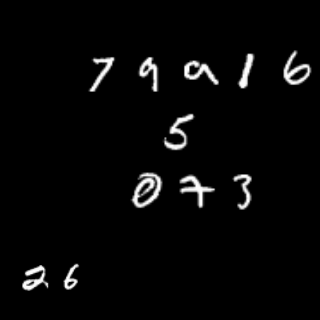 79916
5
073
26